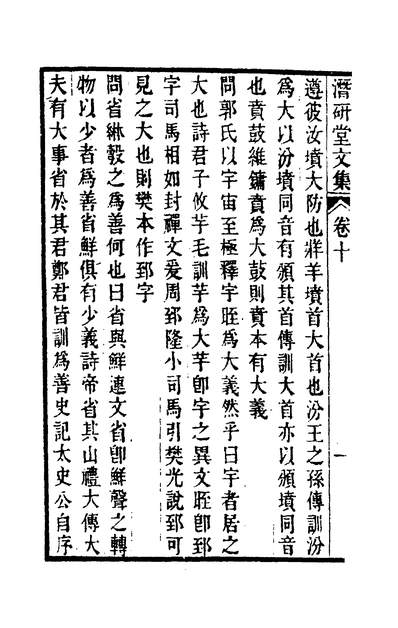 潛研堂文集 卷十 一
遵彼汝墳大防也牂羊墳首大首也汾王之孫傳訓汾
爲大以汾墳同音有頒其首傳訓大首亦以頒墳同音
也賁鼓維鏞賁爲大鼓則賁本有大義
問郭氏以宇宙至極釋宇晊爲大義然乎曰宇者居之
大也詩君子攸芋毛訓芋爲大芋卽宇之異文晊卽郅
字司馬相如封禪文爰周郅隆小司馬引樊光說郅可
見之大也則樊本作郅字
問省綝縠之爲善何也曰省與鮮連文省卽鮮聲之轉
物以少者爲善省鮮俱有少義詩帝省其山禮大傳大
夫有大事省於其君鄭君皆訓爲善史記太史公自序